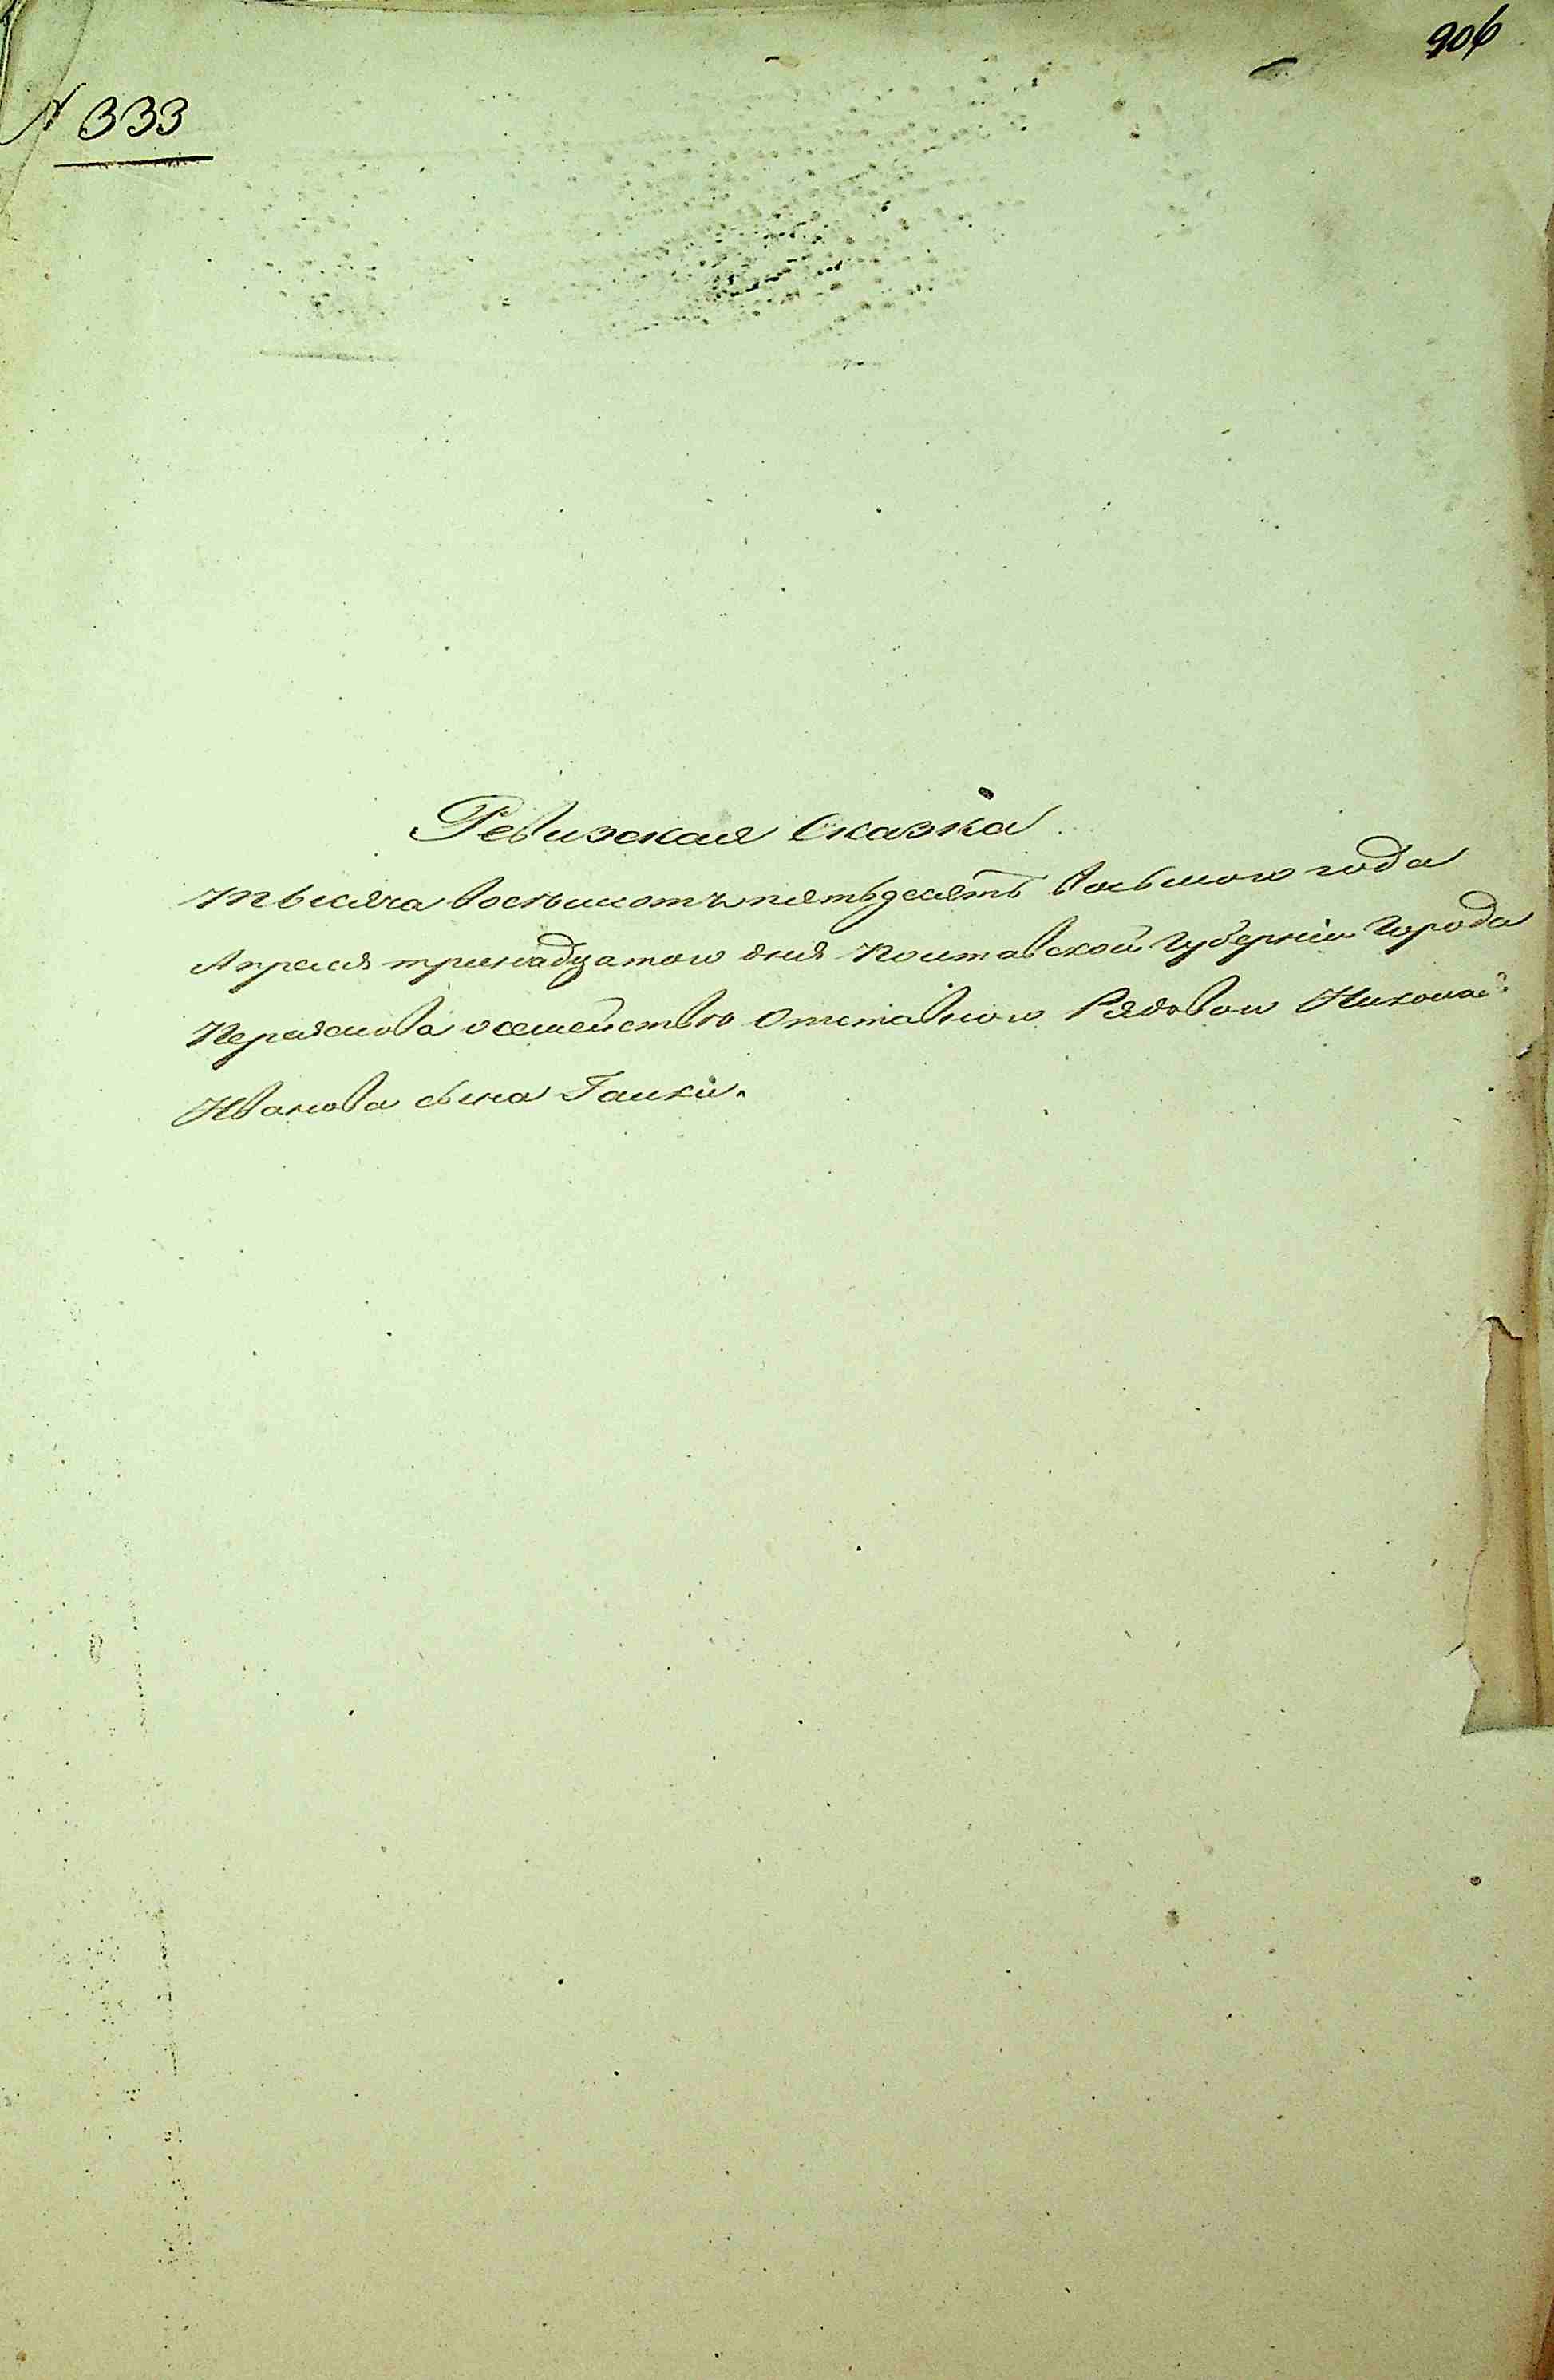 906
№ 333
Ревизская Сказка
Тысяча восемьсотъ пятьдесятъ восьмого года
Апреля тринадцатого дня Полтавской Губерніи Города
Переяслова о семействе Отставного Рядового Николая
Иванова сына Галки.